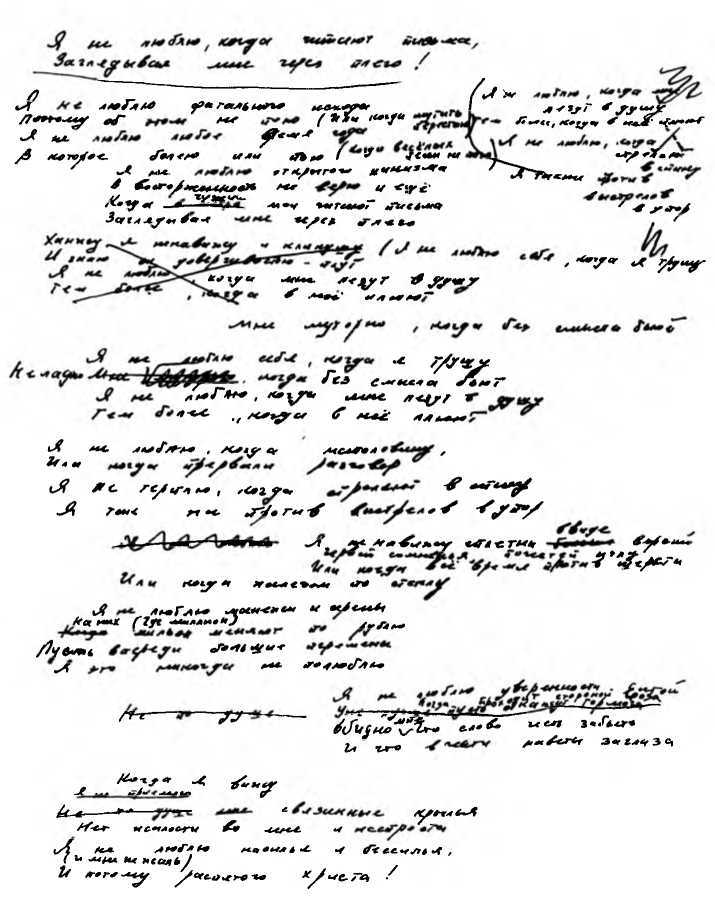 Я не люблю, когда читают письма,
Заглядывая мне через плечо!
Я не люблю фатального исхода
Поэтому об этом не пою (Или когда мутить
Я не люблю любое время года
В которое болею или пью (когда весёлых
Я не люблю открытого цинизма
В восторженность не верю и ещё
Когда чужие мои читают письма
Заглядывая мне через плечо
Я не люблю, когда мне
лезут в душу
тем более, когда в неё плюют
Я не люблю, когда
стреляют
в спину
Я также против
выстрелов
в упор
Ханжу я ненавижу и
И знаю доверчивостью
Я не люблю, когда мне лезут в душу
Тем более, когда в неё плюют
(Я не люблю себя, когда я трушу
Мне муторно, когда без смысла бьют
Я не люблю себя, когда я трушу
Не ладно мне когда без смысла бьют
Я не люблю, когда мне лезут в душу
Тем более, когда в неё плюют
Я не люблю, когда наполовину,
Или когда прервали разговор
Я не терплю, когда стреляют в спину
Я тоже против выстрелов в упор
Я ненавижу сплетни в виде версий
Червей сомненья, почестей иглу
Или когда всё время против шерсти
Или когда железом по стеклу
Я не люблю манежи и арены
На них (Где миллион)
мильон меняют по рублю
Пусть впереди большие перемены
Я это никогда не полюблю
Не по душе
Я не люблю уверенности сытой
Когда проходит стороной гроза
Уж лучше пусть откажут тормоза
Обидно мне что слово честь забыто
И что в чести наветы за глаза
Когда я вижу
Я не приемлю
Не по душе мне связанные крылья
Нет жалости во мне и неспроста
Я не люблю насилья и бессилья,
(и мне не жаль)
И потому распятого христа!